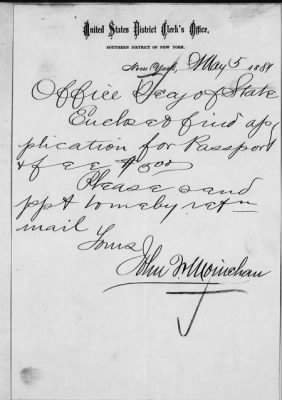 United States District Clerk's Office,
SOUTHERN DISTRICT OF NEW YORK.
New York, May 5 188
Office Secy of State
Enclosed find ap-
plication for Passport
& fee $5.00
Please send
ppt to me by retn
mail
Yours
John W Moinehan